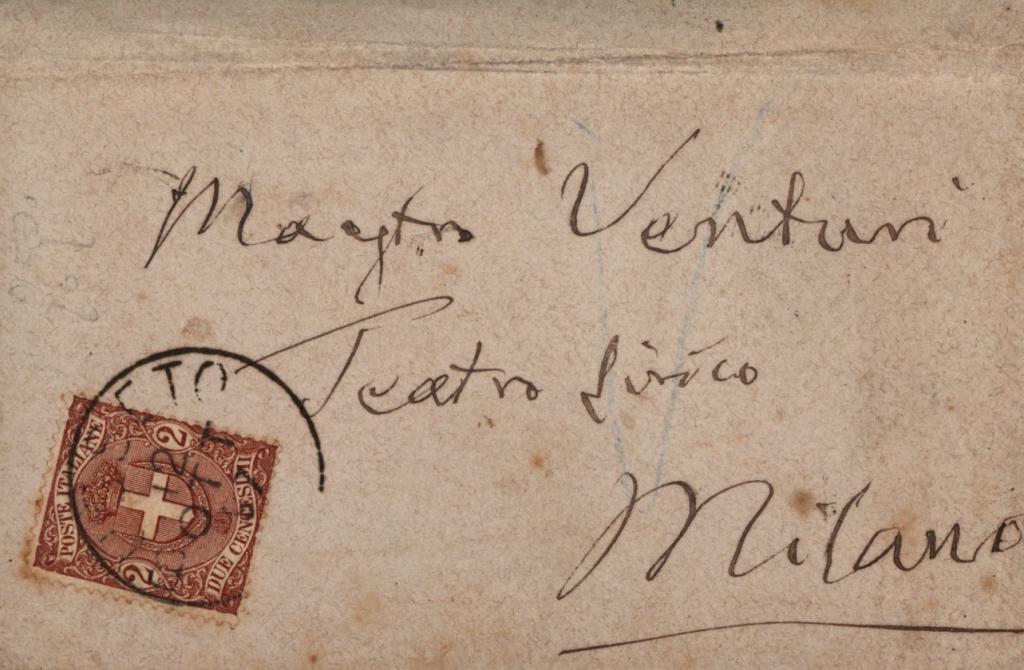 Maestro Venturi
Teatro Lirico
Milano
POSTE ITALIANE
2
DUE CENTESIMI
2